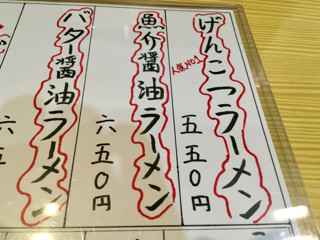 げんこつラーメン
人気NO1
五五〇円
魚介醤油ラーメン
六五〇円
バター醤油ラーメン
六五